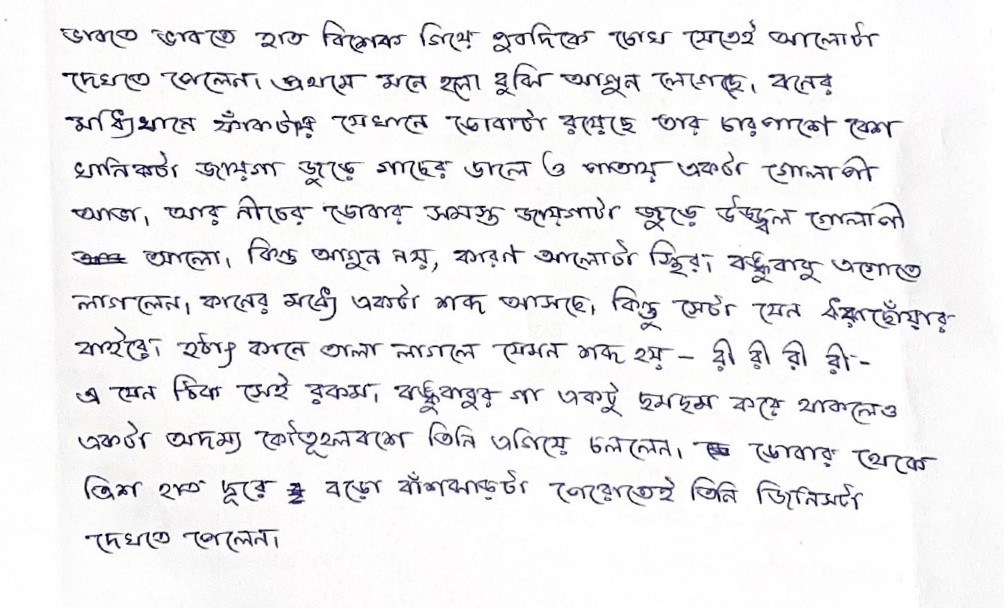 ভাবতে ভাবতে হাত বিশেক গিয়ে পুবদিকে চোখ যেতেই আলোটা
দেখতে পেলেন। প্রথমে মনে হলো বুঝি আগুন লেগেছে। বনের
মধ্যিখানে ফাঁকটায় যেখানে ডোবাটা রয়েছে তার চারপাশে বেশ
খানিকটা জায়গা জুড়ে গাছের ডালে ও পাতায় একটা গোলাপী
আভা। আর নীচের ডোবার সমস্ত জায়গাটা জুড়ে উজ্জ্বল গোলাপী
আলো। কিন্তু আগুন নয়, কারণ আলোটা স্থির। বঙ্কুবাবু এগোতে
লাগলেন। কানের মধ্যে একটা শব্দ আসছে। কিন্তু সেটা যেন ধরাছোঁয়ার
বাইরে। হঠাৎ কানে তালা লাগলে যেমন শব্দ হয় - রী রী রী রী -
এ যেন ঠিক সেই রকম। বঙ্কুবাবুর গা একটু ছমছম করে থাকলেও
একটা অদম্য কৌতূহলবশে তিনি এগিয়ে চললেন। ডোবার থেকে
ত্রিশ হাত দূরে বড়ো বাঁশঝাড়টা পেরোতেই তিনি জিনিসটা
দেখতে পেলেন।